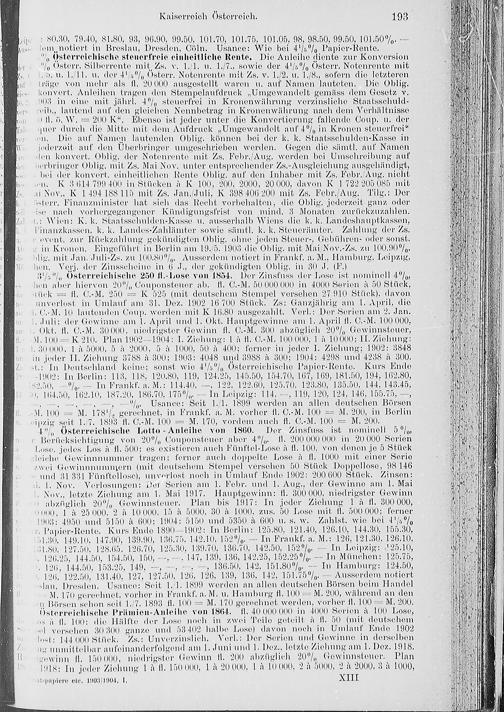 Kaiserreich Österreich. 193
80.30, 79.40, 81.80, 93, 96.90, 99.50, 101.70, 101.75, 101.05, 98, 98.50, 99.50, 101.50%. —
notiert in Breslau, Dresden, Cöln. Usance: Wie bei 4¹/₅% Papier-Rente.
% Österreichische steuerfreie einheitliche Rente. Die Anleihe diente zur Konversion
% Österr. Silberrente mit Zs. v. 1./1. u. 1./7., sowie der 4¹/₅% Österr. Notenrente mit
u. 1./11. u. der 4¹/₅% Österr. Notenrente mit Zs. v. 1./2. u. 1./8., sofern die letzteren
träge von mehr als fl. 20 000 ausgestellt waren u. auf Namen lauteten. Die Oblig.
konvert. Anleihen tragen den Stempelaufdruck „Umgewandelt gemäss dem Gesetz v.
in eine mit jährl. 4% steuerfrei in Kronenwährung verzinsliche Staatsschuld-
lautend auf den gleichen Nennbetrag in Kronenwährung nach dem Verhältnisse
fl. 5, W. = 200 K“. Ebenso ist jeder unter die Konvertierung fallende Coup. u. der
quer durch die Mitte mit dem Aufdruck „Umgewandelt auf 4% in Kronen steuerfrei“
Die auf Namen lautenden Oblig. können bei der k. k. Staatsschulden-Kasse in
jederzeit auf den Überbringer umgeschrieben werden. Gegen die sämtl. auf Namen
den konvert. Oblig. der Notenrente mit Zs. Febr./Aug. werden bei Umschreibung auf
Oblig. mit Zs. Mai Nov. unter entsprechender Zs.-Ausgleichung ausgehändigt,
bei der konvert. einheitlichen Rente Oblig. auf den Inhaber mit Zs. Febr./Aug. nicht
K 3 614 799 400 in Stücken à K 100, 200, 2000, 20 000, davon K 1 722 205 085 mit
Nov., K 1 494 188 115 mit Zs. Jan./Juli, K 398 406 200 mit Zs. Febr./Aug. Tilg.: Der
österr. Finanzminister hat sich das Recht vorbehalten, die Oblig. jederzeit ganz oder
nach vorhergegangener Kündigungsfrist von mind. 3 Monaten zurückzuzahlen.
Wien: K. k. Staatsschulden-Kasse u. ausserhalb Wiens die k. k. Landeshauptkassen,
Finanzkassen, k. k. Landes-Zahlämter sowie sämtl. k. k. Steuerämter. Zahlung der Zs.
event. zur Rückzahlung gekündigten Oblig. ohne jeden Steuer-, Gebühren- oder sonst.
in Kronen. Eingeführt in Berlin am 19./5. 1903 die Oblig. mit Mai Nov.-Zs. zu 100.90%,
mit Jan. Juli-Zs. zu 100.80%. Ausserdem notiert in Frankf. a. M., Hamburg, Leipzig,
Verj. der Zinsscheine in 6 J., der gekündigten Oblig. in 30 J. (F.)
Österreichische 250 fl.-Lose von 1854. Der Zinsfuss ist nominell 4%,
aber hiervon 20% Couponsteuer ab. fl. C.-M. 50 000 000 in 4000 Serien à 50 Stück,
fl. C.-M. 250 = K 525 (mit deutschem Stempel versehen 27 910 Stück), davon
unverlost in Umlauf am 31. Dez. 1902 16 700 Stück. Zs: Ganzjährig am 1. April, die
C.-M. 10 lautenden Coup. werden mit K 16.80 ausgezahlt. Verl.: Der Serien am 2. Jan.
Juli; der Gewinne am 1. April und 1. Okt. Hauptgewinne am 1. April fl. C.-M. 100 000,
Okt. fl. C.-M. 30 000, niedrigster Gewinn fl. C.-M. 300 abzüglich 20% Gewinnsteuer,
M. 100 = K 210. Plan 1902—1904: I. Ziehung: 1 à fl. C.-M. 100 000, 1 à 10 000; II. Ziehung:
30 000, 1 à 5000, 5 à 2000, 5 à 1000, 50 à 400; ferner in jeder I. Ziehung; 1902: 3848
in jeder II. Ziehung 3788 à 300; 1903: 4048 und 3988 à 300; 1904: 4298 und 4238 à 300.
In Deutschland keine; sonst wie 4¹/₅% Österreichische Papier-Rente. Kurs Ende
1902: In Berlin: 113, 118, 120.80, 119, 124.25, 145.50, 154.70, 167, 169, 181.50, 194, 162.80,
— In Frankf. a. M.: 114.40, —, 122, 122.60, 125.70, 123.80, 135.50, 144, 143.45,
164.50, 162.10, 187.20, 186.70, 175%. — In Leipzig: 114, —, 119, 120, 124, 146, 155.75, —,
—, —, —, —, —%. Usance: Seit 1./1. 1899 werden an allen deutschen Börsen
M. 100 = M. 178¹/₂ gerechnet, in Frankf. a. M. vorher fl. C.-M. 100 = M. 200, in Berlin
seit 1./7. 1893 fl. C.-M. 100 = M. 170, vordem auch fl. C.-M. 100 = M. 200.
4% Österreichische Lotto-Anleihe von 1860. Der Zinsfuss ist nominell 5%,
Berücksichtigung von 20% Couponsteuer aber 4%. fl. 200 000 000 in 20 000 Serien
Lose, jedes Los à fl. 500; es existieren auch Fünftel-Lose à fl. 100, von denen je 5 Stück
gleiche Gewinnnummer tragen; ferner auch doppelte Lose à fl. 1000 mit einer Serie
zwei Gewinnnummern (mit deutschem Stempel versehen 50 Stück Doppellose, 98 146
und 31 331 Fünftellose), unverlost noch in Umlauf Ende 1902: 200 000 Stück. Zinsen:
1. Nov. Verlosungen: der Serien am 1. Febr. und 1. Aug., der Gewinne am 1. Mai
Nov., letzte Ziehung am 1. Mai 1917. Hauptgewinn: fl. 300 000, niedrigster Gewinn
abzüglich 20% Gewinnsteuer. Plan bis 1917: In jeder Ziehung 1 à fl. 300 000,
1 à 25 000, 2 à 10 000, 15 à 5000, 30 à 1000, zus. 50 Lose mit fl. 500 000; ferner
1903: 4950 und 5150 à 600; 1904: 5150 und 5350 à 600 u. s. w. Zahlst. wie bei 4¹/₅%
Papier-Rente. Kurs Ende 1890—1902: In Berlin: 125.80, 121.40, 126.10, 144.30, 155.30,
151.30, 149.10, 147.90, 139.90, 136.75, 142.10, 152%. — In Frankf. a. M.: 126, 121.30, 126.10,
127.50, 128.65, 126.70, 125.30, 139.70, 136.70, 142.50, 152%. — In Leipzig: 125.10,
126.25, 144.50, 154.50, 150, —, —, 147, 139, 136, 142.25, 152.25%. — In München: 125.75,
126, 144.50, 153.25, 149, —, —, —, —, 136.50, 142, 151.80%. — In Hamburg: 124.50,
126, 122.50, 131.40, 127, 127.50, 126, 126, 139, 136, 142, 151.75%. — Ausserdem notiert
Dresden. Usance: Seit 1./1. 1899 werden an allen deutschen Börsen beim Handel
M. 170 gerechnet, vorher in Frankf. a. M. u. Hamburg fl. 100 = M. 200, während an den
Börsen schon seit 1./7. 1893 fl. 100 = M. 170 gerechnet werden, vorher fl. 100 = M. 200.
Österreichische Prämien-Anleihe von 1864. fl. 40 000 000 in 4000 Serien à 100 Lose,
à fl. 100; die Hälfte der Lose noch in zwei Teile geteilt à fl. 50 (mit deutschem
versehen 30 300 ganze und 53 402 halbe Lose) davon noch in Umlauf Ende 1902
144 000 Stück. Zs.: Unverzinslich. Verl.: Der Serien und Gewinne in derselben
unmittelbar aufeinanderfolgend am 1. Juni und 1. Dez., letzte Ziehung am 1. Dez. 1918.
fl. 150 000, niedrigster Gewinn fl. 200 abzüglich 20% Gewinnsteuer. Plan
1918: In jeder Ziehung 1 à fl. 150 000, 1 à 20 000, 1 à 10 000, 2 à 5000, 2 à 2000, 3 à 1000,
papiere etc. 1903/1904. I. XIII